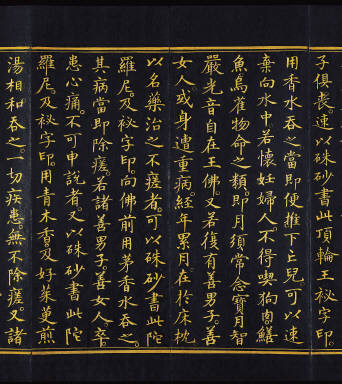 子俱喪。速以硃砂書此頂輪王秘字印。
用香水吞之。當即便推下亡兒。可以速
棄向水中。若懷妊婦人。不得喫狗肉鱔
魚鳥雀物命之類。即月須常念寶月智
嚴光音自在王佛。又若復有善男子善
女人。或身遭重病。經年累月。在於床枕。
以名藥治之不瘥者。可以硃砂書此陀
羅尼。及祕字印。向佛前用茅香水吞之。
其病當即除瘥。若諸善男子。善女人。卒
患心痛。不可申說者。又以硃砂書此陀
羅尼。及祕字印。用青木香及好茱萸煎
湯相和吞之。一切疾患。無不除瘥。又諸